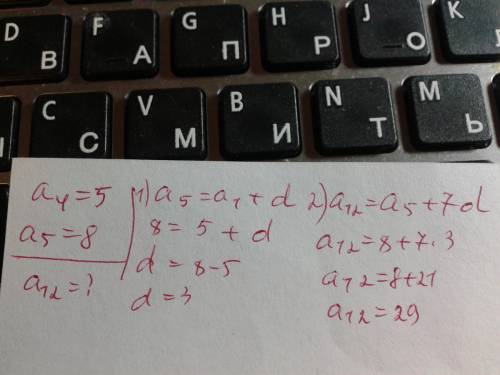 D F G H J K
В А П Р О
C V B N M
С М И Т Ь
a₄=5
a₅=8
a₁₂=?
1) a₅=a₄+d
8=5+d
d=8-5
d=3
2) a₁₂=a₅+7d
a₁₂=8+7·3
a₁₂=8+21
a₁₂=29